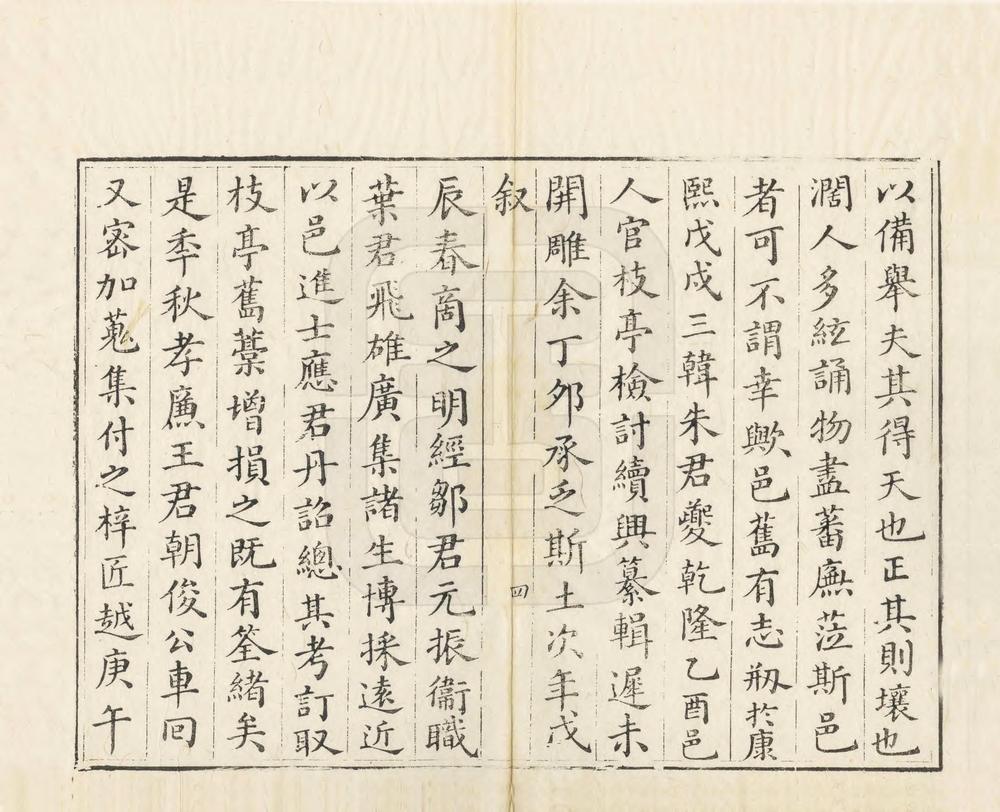 以備舉夫其得天也正其則壤也
濶人多絃誦物盡蕃廡蒞斯邑
者可不謂幸歟邑舊有志剏於康
熙戊戌三韓朱君夔乾隆乙酉邑
人官枝亭檢計續興纂輯遲未
開雕余丁夘承乏斯土次年戊
叙
四
辰春商之明經鄒君元振衞職
葉君飛雄廣集諸生博採遠近
以邑進士應君丹詔總其考訂取
枝亭舊藁增損之既有筌緒矣
是秊秋孝廉王君朝俊公車回
又宻加蒐集付之梓匠越庚午